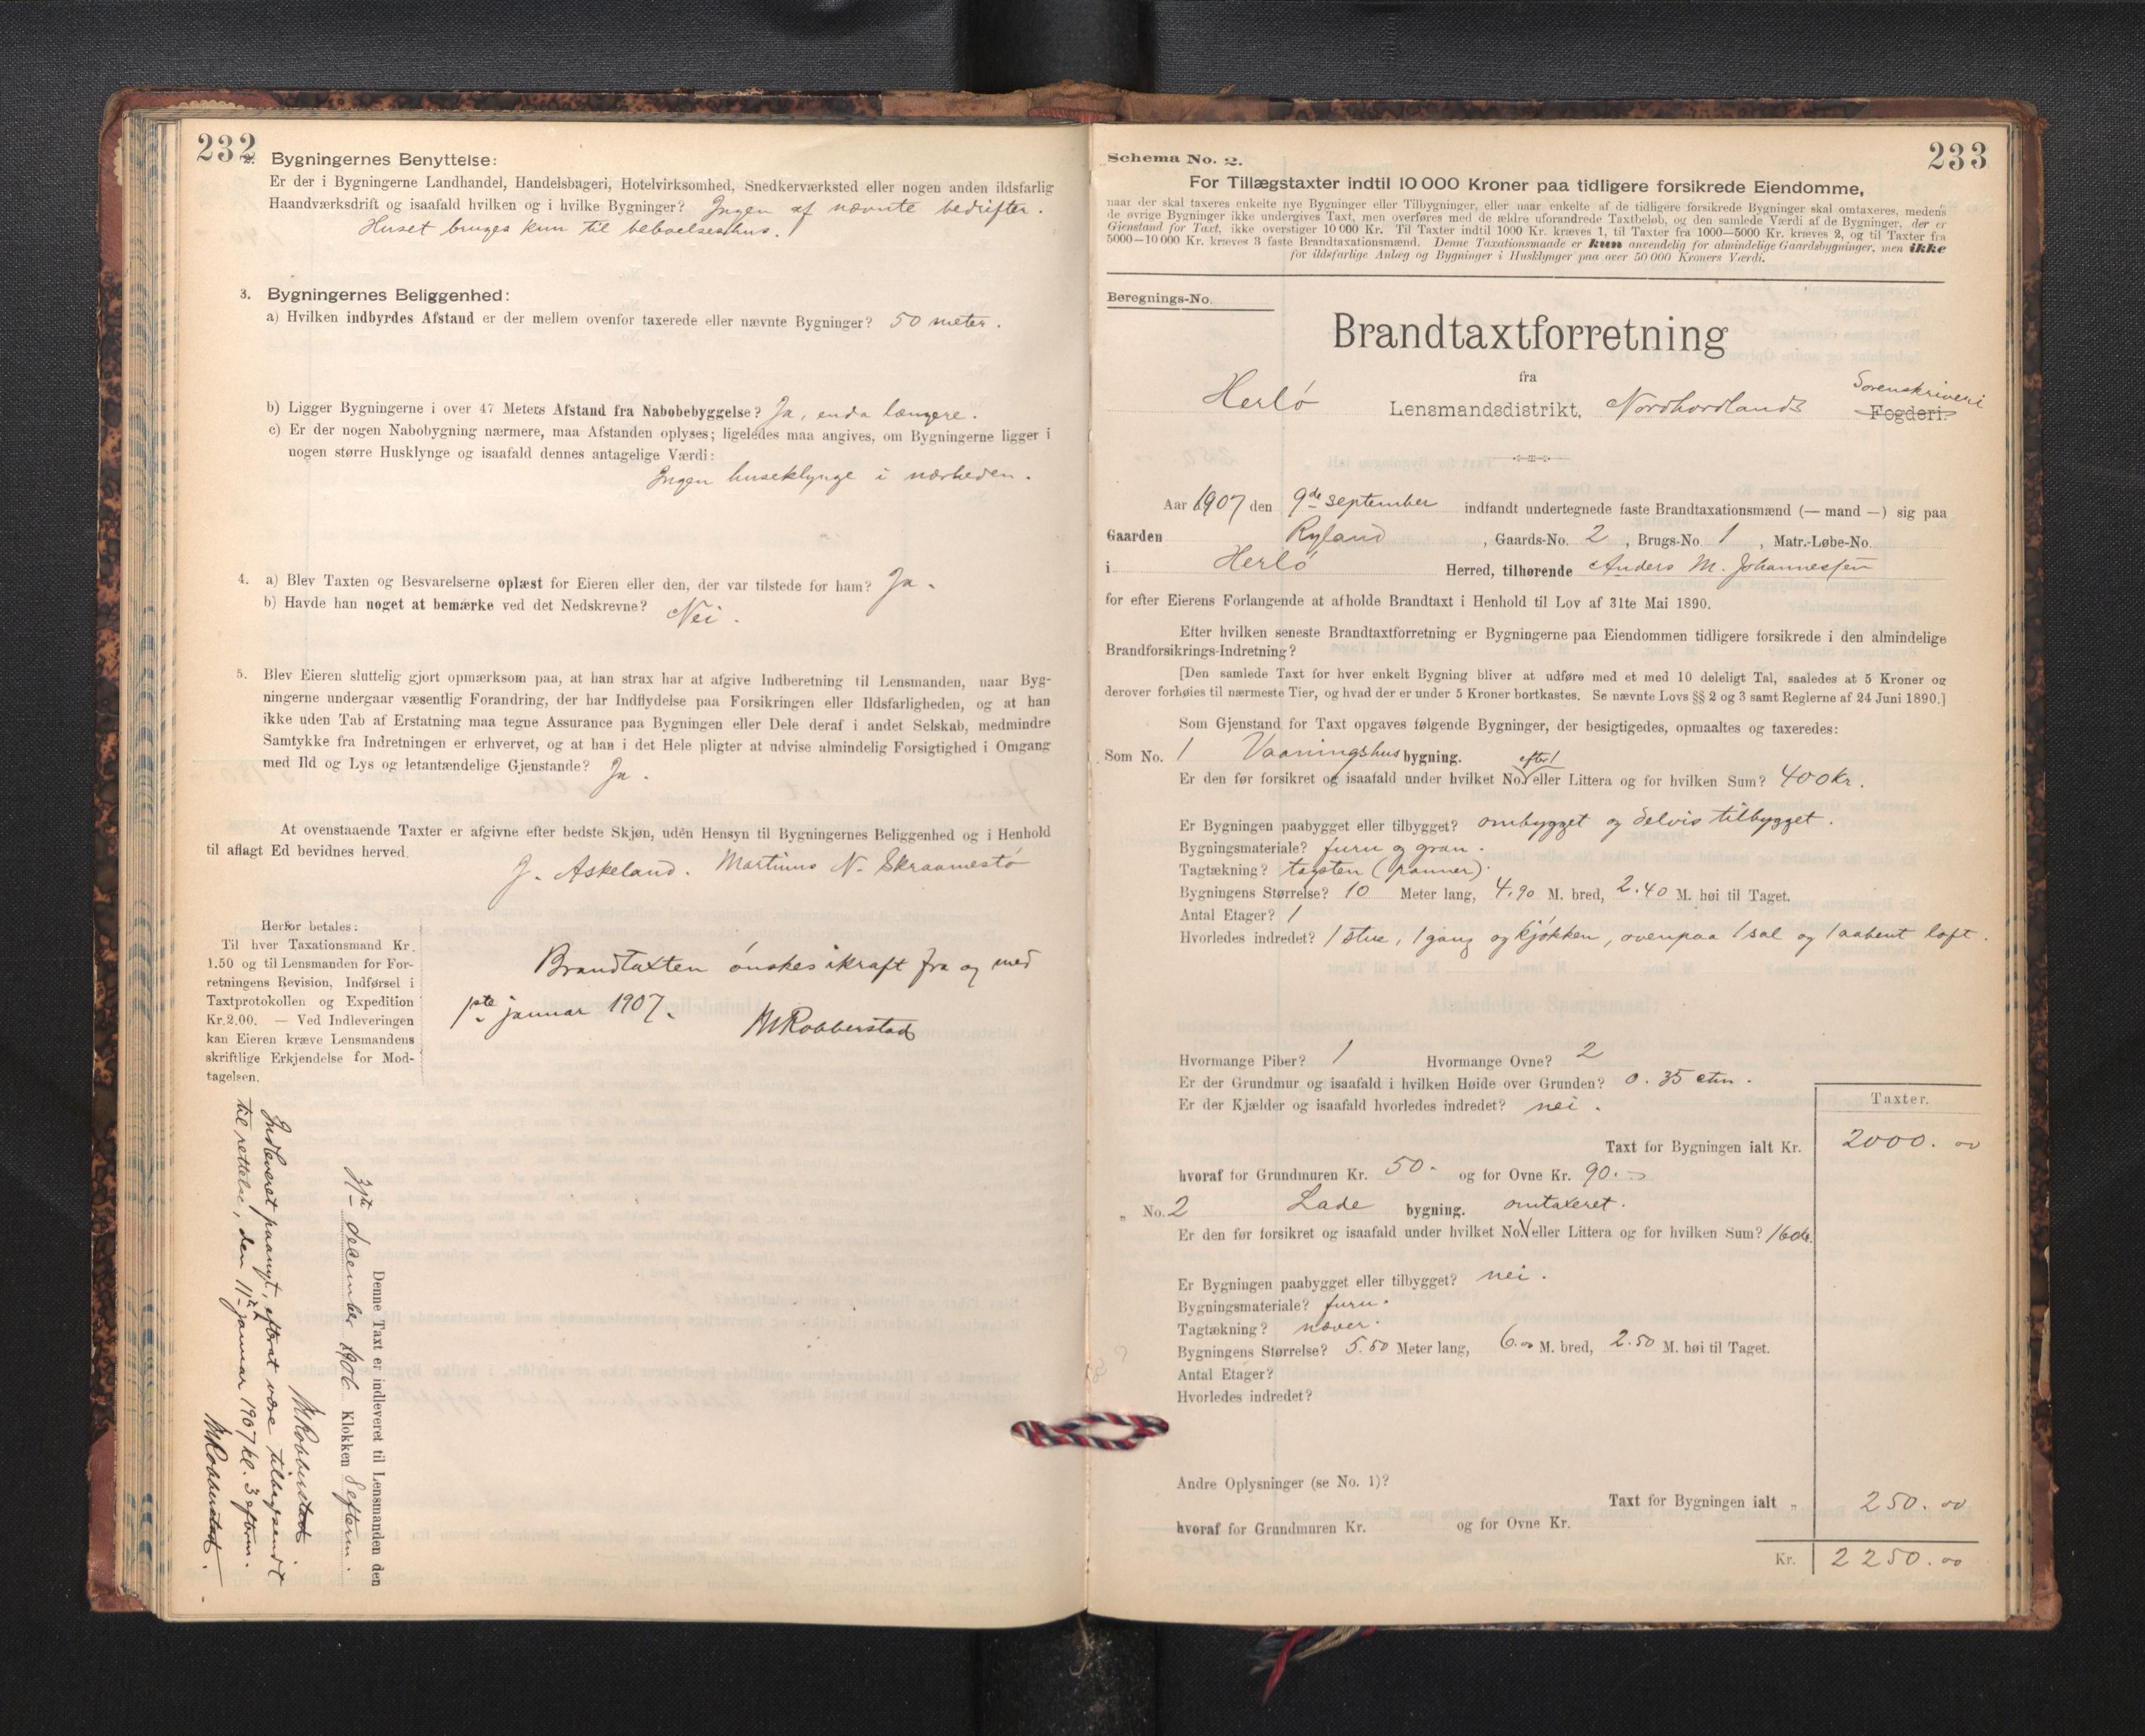 232
2. Bygningernes Benyttelse:
Er der i Bygningerne Landhandel, Handelsbageri, Hotelvirksomhed, Snedkerværksted eller nogen anden ildsfarlig
Haandværksdrift og isaafald hvilken og i hvilke Bygninger? Ingen af nævnte bedrifter.
Huset bruges kun til beboelseshus.
3. Bygningernes Beliggenhed:
a) Hvilken indbyrdes Afstand er der mellem ovenfor taxerede eller nævnte Bygninger? 50 meter.
b) Ligger Bygningerne i over 47 Meters Afstand fra Nabobebyggelse? Ja, enda længere.
c) Er der nogen Nabobygning nærmere, maa Afstanden oplyses; ligeledes maa angives, om Bygningerne ligger i
nogen større Husklynge og isaafald dennes antagelige Værdi:
Ingen huseklynge i nærheden.
4. a) Blev Taxten og Besvarelserne oplæst for Eieren eller den, der var tilstede for ham? Ja.
b) Havde han noget at bemærke ved det Nedskrevne? Nei.
5. Blev Eieren sluttelig gjort opmærksom paa, at han strax har at afgive Indberetning til Lensmanden, naar Byg-
ningerne undergaar væsentlig Forandring, der har Indflydelse paa Forsikringen eller Ildsfarligheden, og at han
ikke uden Tab af Erstatning maa tegne Assurance paa Bygningen eller Dele deraf i andet Selskab, medmindre
Samtykke fra Indretningen er erhvervet, og at han i det Hele pligter at udvise almindelig Forsigtighed i Omgang
med Ild og Lys og letantændelige Gjenstande? Ja.
At ovenstaaende Taxter er afgivne efter bedste Skjøn, uden Hensyn til Bygningernes Beliggenhed og i Henhold
til aflagt Ed bevidnes herved.
J. Askeland. Martinus N. Skraamestø
Herfor betales:
Til hver Taxationsmand Kr.
1.50 og til Lensmanden for For-
retningens Revision, Indførsel i
Taxtprotokollen og Expedition
Kr. 2.00. — Ved Indleveringen
kan Eieren kræve Lensmandens
skriftlige Erkjendelse for Mod-
tagelsen.
Brandtaxten ønskes ikraft fra og med
1ste januar 1907.
M Robberstad
Denne Taxt er indleveret til Lensmanden den
31te december 1906 Klokken 8 efterm.
M Robberstad.
Indleveret paanyt, efterat være tilbagesendt
til rettelse, den 11te januar 1907 kl. 3 efterm.
M Robberstad.
233
Schema No. 2.
For Tillægstaxter indtil 10 000 Kroner paa tidligere forsikrede Eiendomme,
naar der skal taxeres enkelte nye Bygninger eller Tilbygninger, eller naar enkelte af de tidligere forsikrede Bygninger skal omtaxeres, medens
de øvrige Bygninger ikke undergives Taxt, men overføres med de ældre uforandrede Taxtbeløb, og den samlede Værdi af de Bygninger, der er
Gjenstand for Taxt, ikke overstiger 10 000 Kr. Til Taxter indtil 1000 Kr. kræves 1, til Taxter fra 1000—5000 Kr. kræves 2, og til Taxter fra
5000—10 000 Kr. kræves 3 faste Brandtaxationsmænd. Denne Taxationsmaade er kun anvendelig for almindelige Gaardsbygninger, men ikke
for ildsfarlige Anlæg og Bygninger i Husklynger paa over 50 000 Kroners Værdi.
Beregnings-No.
Brandtaxtforretning
fra
Herlø Lensmandsdistrikt, Nordhordlands Sorenskriveri Fogderi.
Aar 1907 den 9de september indfandt undertegnede faste Brandtaxationsmænd (— mand —) sig paa
Gaarden Ryland, Gaards-No. 2, Brugs-No. 1, Matr.-Løbe-No.
i Herlø Herred, tilhørende Anders M. Johannessen
for efter Eierens Forlangende at afholde Brandtaxt i Henhold til Lov af 31te Mai 1890.
Efter hvilken seneste Brandtaxtforretning er Bygningerne paa Eiendommen tidligere forsikrede i den almindelige
Brandforsikrings-Indretning?
[Den samlede Taxt for hver enkelt Bygning bliver at udføre med et med 10 deleligt Tal, saaledes at 5 Kroner og
derover forhøies til nærmeste Tier, og hvad der er under 5 Kroner bortkastes. Se nævnte Lovs §§ 2 og 3 samt Reglerne af 24 Juni 1890.]
Som Gjenstand for Taxt opgaves følgende Bygninger, der besigtigedes, opmaaltes og taxeredes:
Som No. 1 Vaaningshusbygning.
Er den før forsikret og isaafald under hvilket No. eller Littera og for hvilken Sum? 400 kr.
Er Bygningen paabygget eller tilbygget? ombygget og delvis tilbygget.
Bygningsmateriale? furu og gran.
Tagtækning? tagsten (panner).
Bygningens Størrelse? 10 Meter lang, 4.90 M. bred, 2.40 M. høi til Taget.
Antal Etager? 1
Hvorledes indredet? 1 stue, 1 gang og kjøkken, ovenpaa 1 sal og 1 aabent loft.
Hvormange Piber? 1 Hvormange Ovne? 2
Er der Grundmur og isaafald i hvilken Høide over Grunden? 0.35 ctm.
Er der Kjælder og isaafald hvorledes indredet? nei.
Taxter.
Taxt for Bygningen ialt Kr. 2000.00
hvoraf for Grundmuren Kr. 50.- og for Ovne Kr. 90.-
„ No. 2 Lade bygning. omtaxeret.
Er den før forsikret og isaafald under hvilket No. eller Littera og for hvilken Sum?
Er Bygningen paabygget eller tilbygget? nei.
Bygningsmateriale? furu.
Tagtækning? næver.
Bygningens Størrelse? 5.50 Meter lang, 6.00 M. bred, 2.50 M. høi til Taget.
Antal Etager?
Hvorledes indredet?
Andre Oplysninger (se No. 1)?
Taxt for Bygningen ialt „ 250.00
hvoraf for Grundmuren Kr. og for Ovne Kr.
Kr. 2250.00